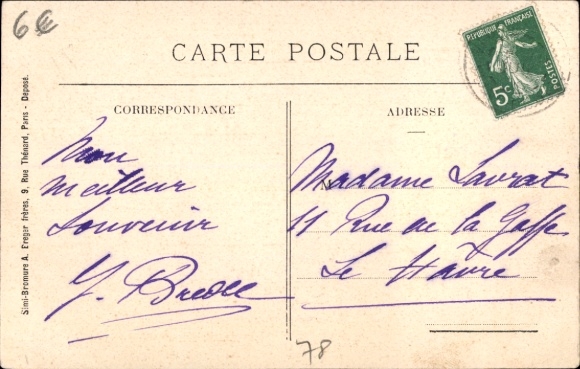 6€
CARTE POSTALE
RÉPUBLIQUE FRANÇAISE
POSTES
5c
CORRESPONDANCE
ADRESSE
Mon
meilleur
Souvenir
Madame Savrat
11 Rue de la Gaffe
Le Havre
78
Simi-Bromure A. Breger frères, 9, Rue Thénard, Paris - Déposé.